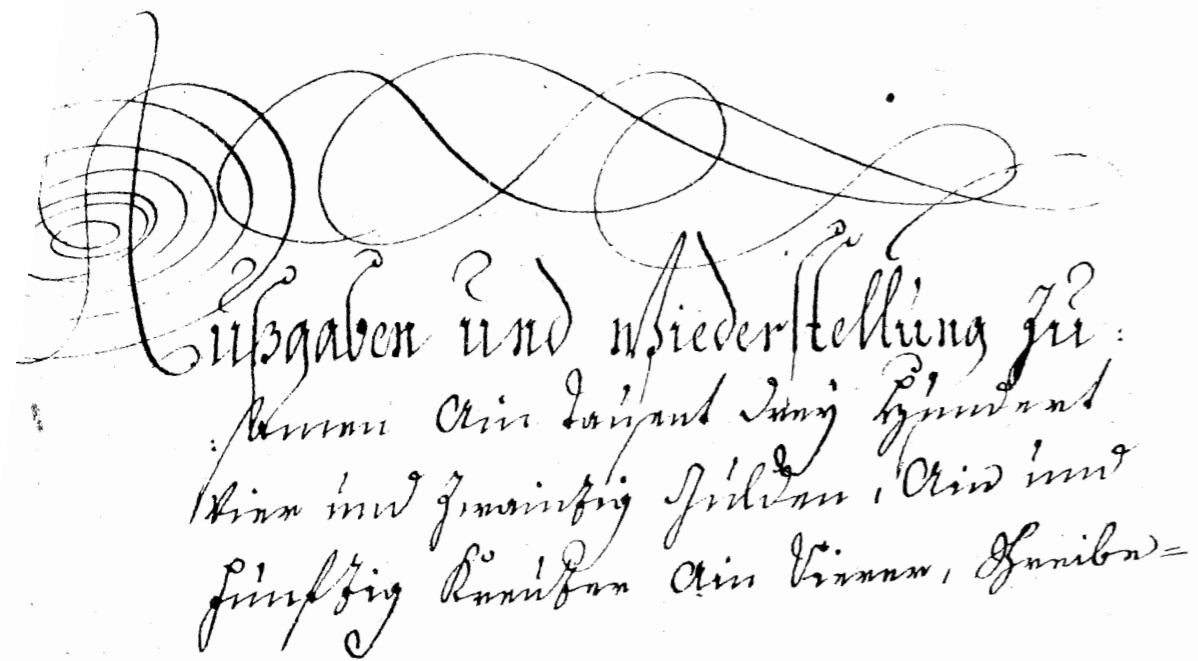 Außgaben und Wiederstellung zu:
:samen Ain tausent drey Hundert
Vier und zwaintzig Gulden, Ain und
fünftzig Kreutzer Ain Vierer, Schreibe=